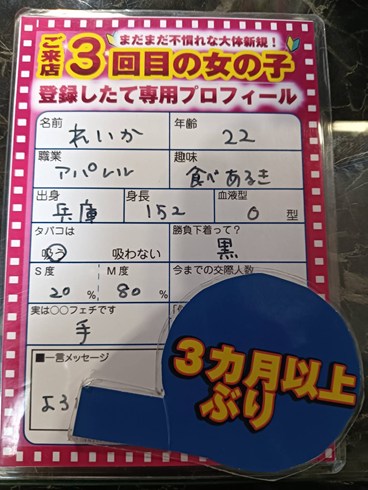 まだまだ不慣れな大体新規！
ご来店3回目の女の子
登録したて専用プロフィール
名前 れいか 年齢 22
職業 アパレル 趣味 食べあるき
出身 兵庫 身長 152 血液型 O 型
タバコは 吸う 吸わない 勝負下着って？ 黒
S度 20 % M度 80 % 今までの交際人数
実は○○フェチです 手
■一言メッセージ
よろ
3カ月以上
ぶり